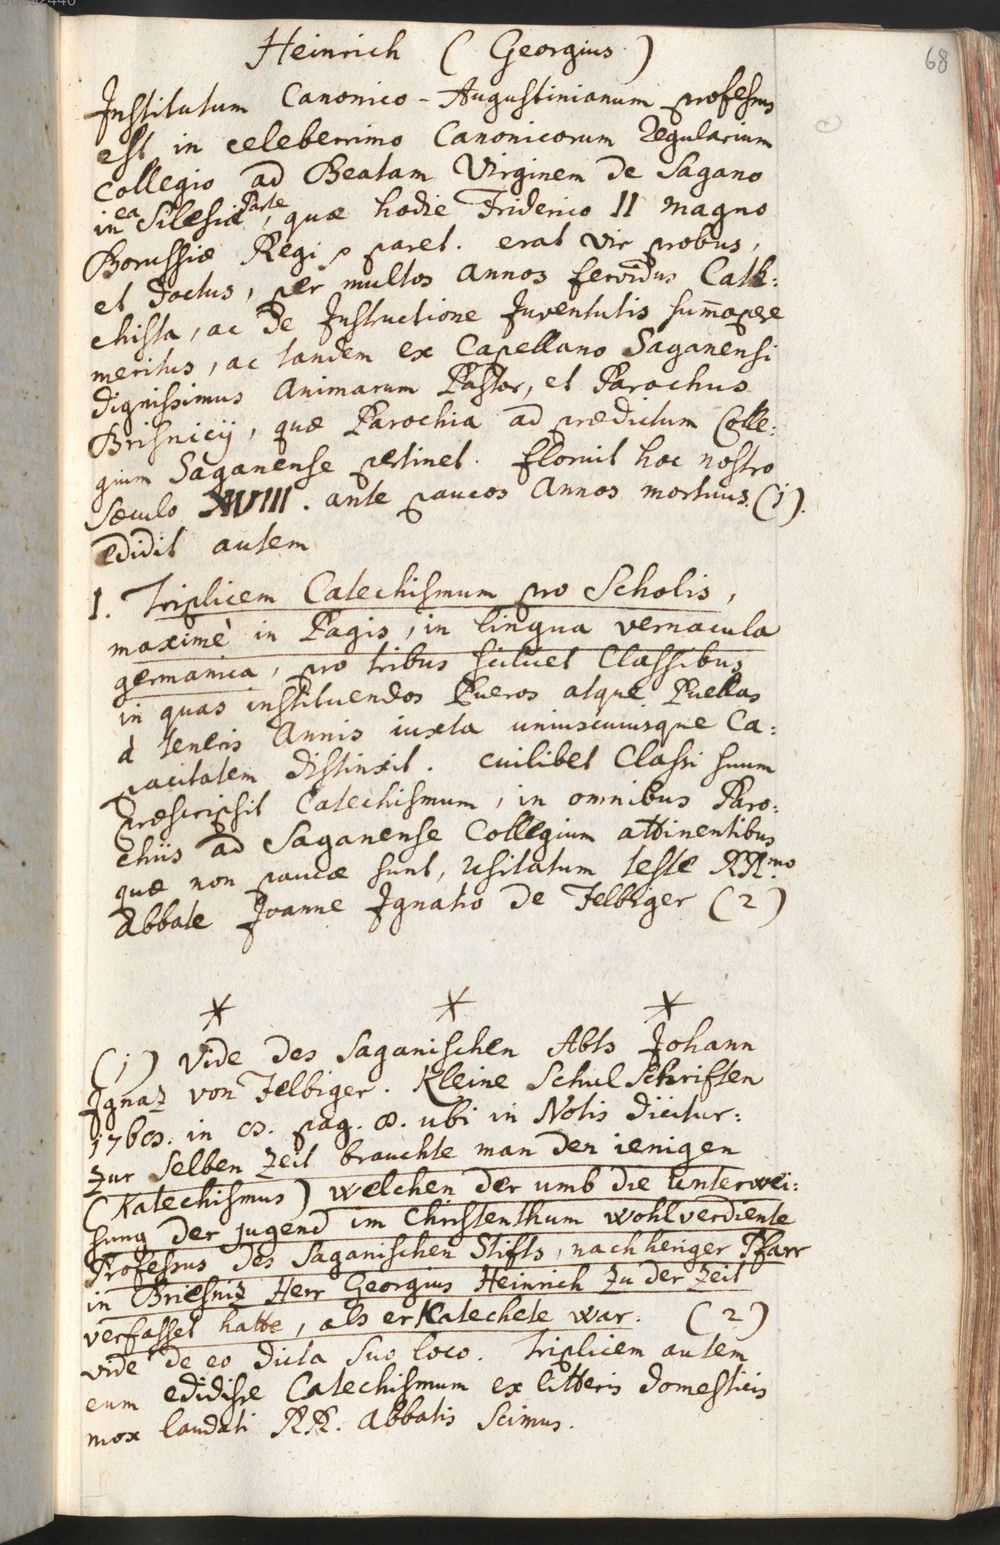 68
Heinrich ( Georgius )
Institutum Canonico-Augustinianum professus
est in celeberrimo Canonicorum Regularium
Collegio ad Beatam Virginem de Sagano
in ea Silesiæ Parte, quæ hodie Friderico II magno
Borussiæ Regi paret. erat vir probus,
et Doctus, per multos Annos fervidus Cate:
chista, ac de Instructione Juventutis sum̄opere
meritus, ac tandem ex Capellano Saganensi
dignissimus Animarum Pastor, et Parochus
Brisnicij, quæ Parochia ad prædictum Colle:
gium Saganense pertinet. floruit hoc nostro
Sæculo XVIII. ante paucos Annos mortuus. (1).
Edidit autem
I. Triplicem Catechismum pro Scholis,
maximè in Pagis, in lingua vernacula
germanica, pro tribus scilicet Classibus
in quas instituendos Pueros atque Puellas
à teneris Annis iuxta uniuscuiusque Ca:
pacitatem distinxit. cuilibet Classi suum
præscripsit Catechismum, in omnibus Paro:
chiis ad Saganense Collegium attinentibus
quæ non paucæ sunt, usitatum teste RR.mo
Abbate Joanne Ignatio de Felbiger (2)
* * *
(1) Vide des Saganischen Abts Johann
Ignaz von Felbiger. Kleine Schul Schriften
in pag. 8. ubi in Notis dicitur:
Zur selben Zeit brauchte man den ienigen
(Katechismus) welchen der umb die Unterwei:
sung der jugend im Christenthum wohlverdiente
Professus des Saganischen Stifts, nachheriger Pfarr
in Briesniz Herr Georgius Heinrich zu der Zeit
verfasset hatte, als er Katechete war. (2)
vide de eo dicta suo loco. Triplicem autem
eum edidisse Catechismum ex litteris domesticis
mox laudati RR. Abbatis scimus.